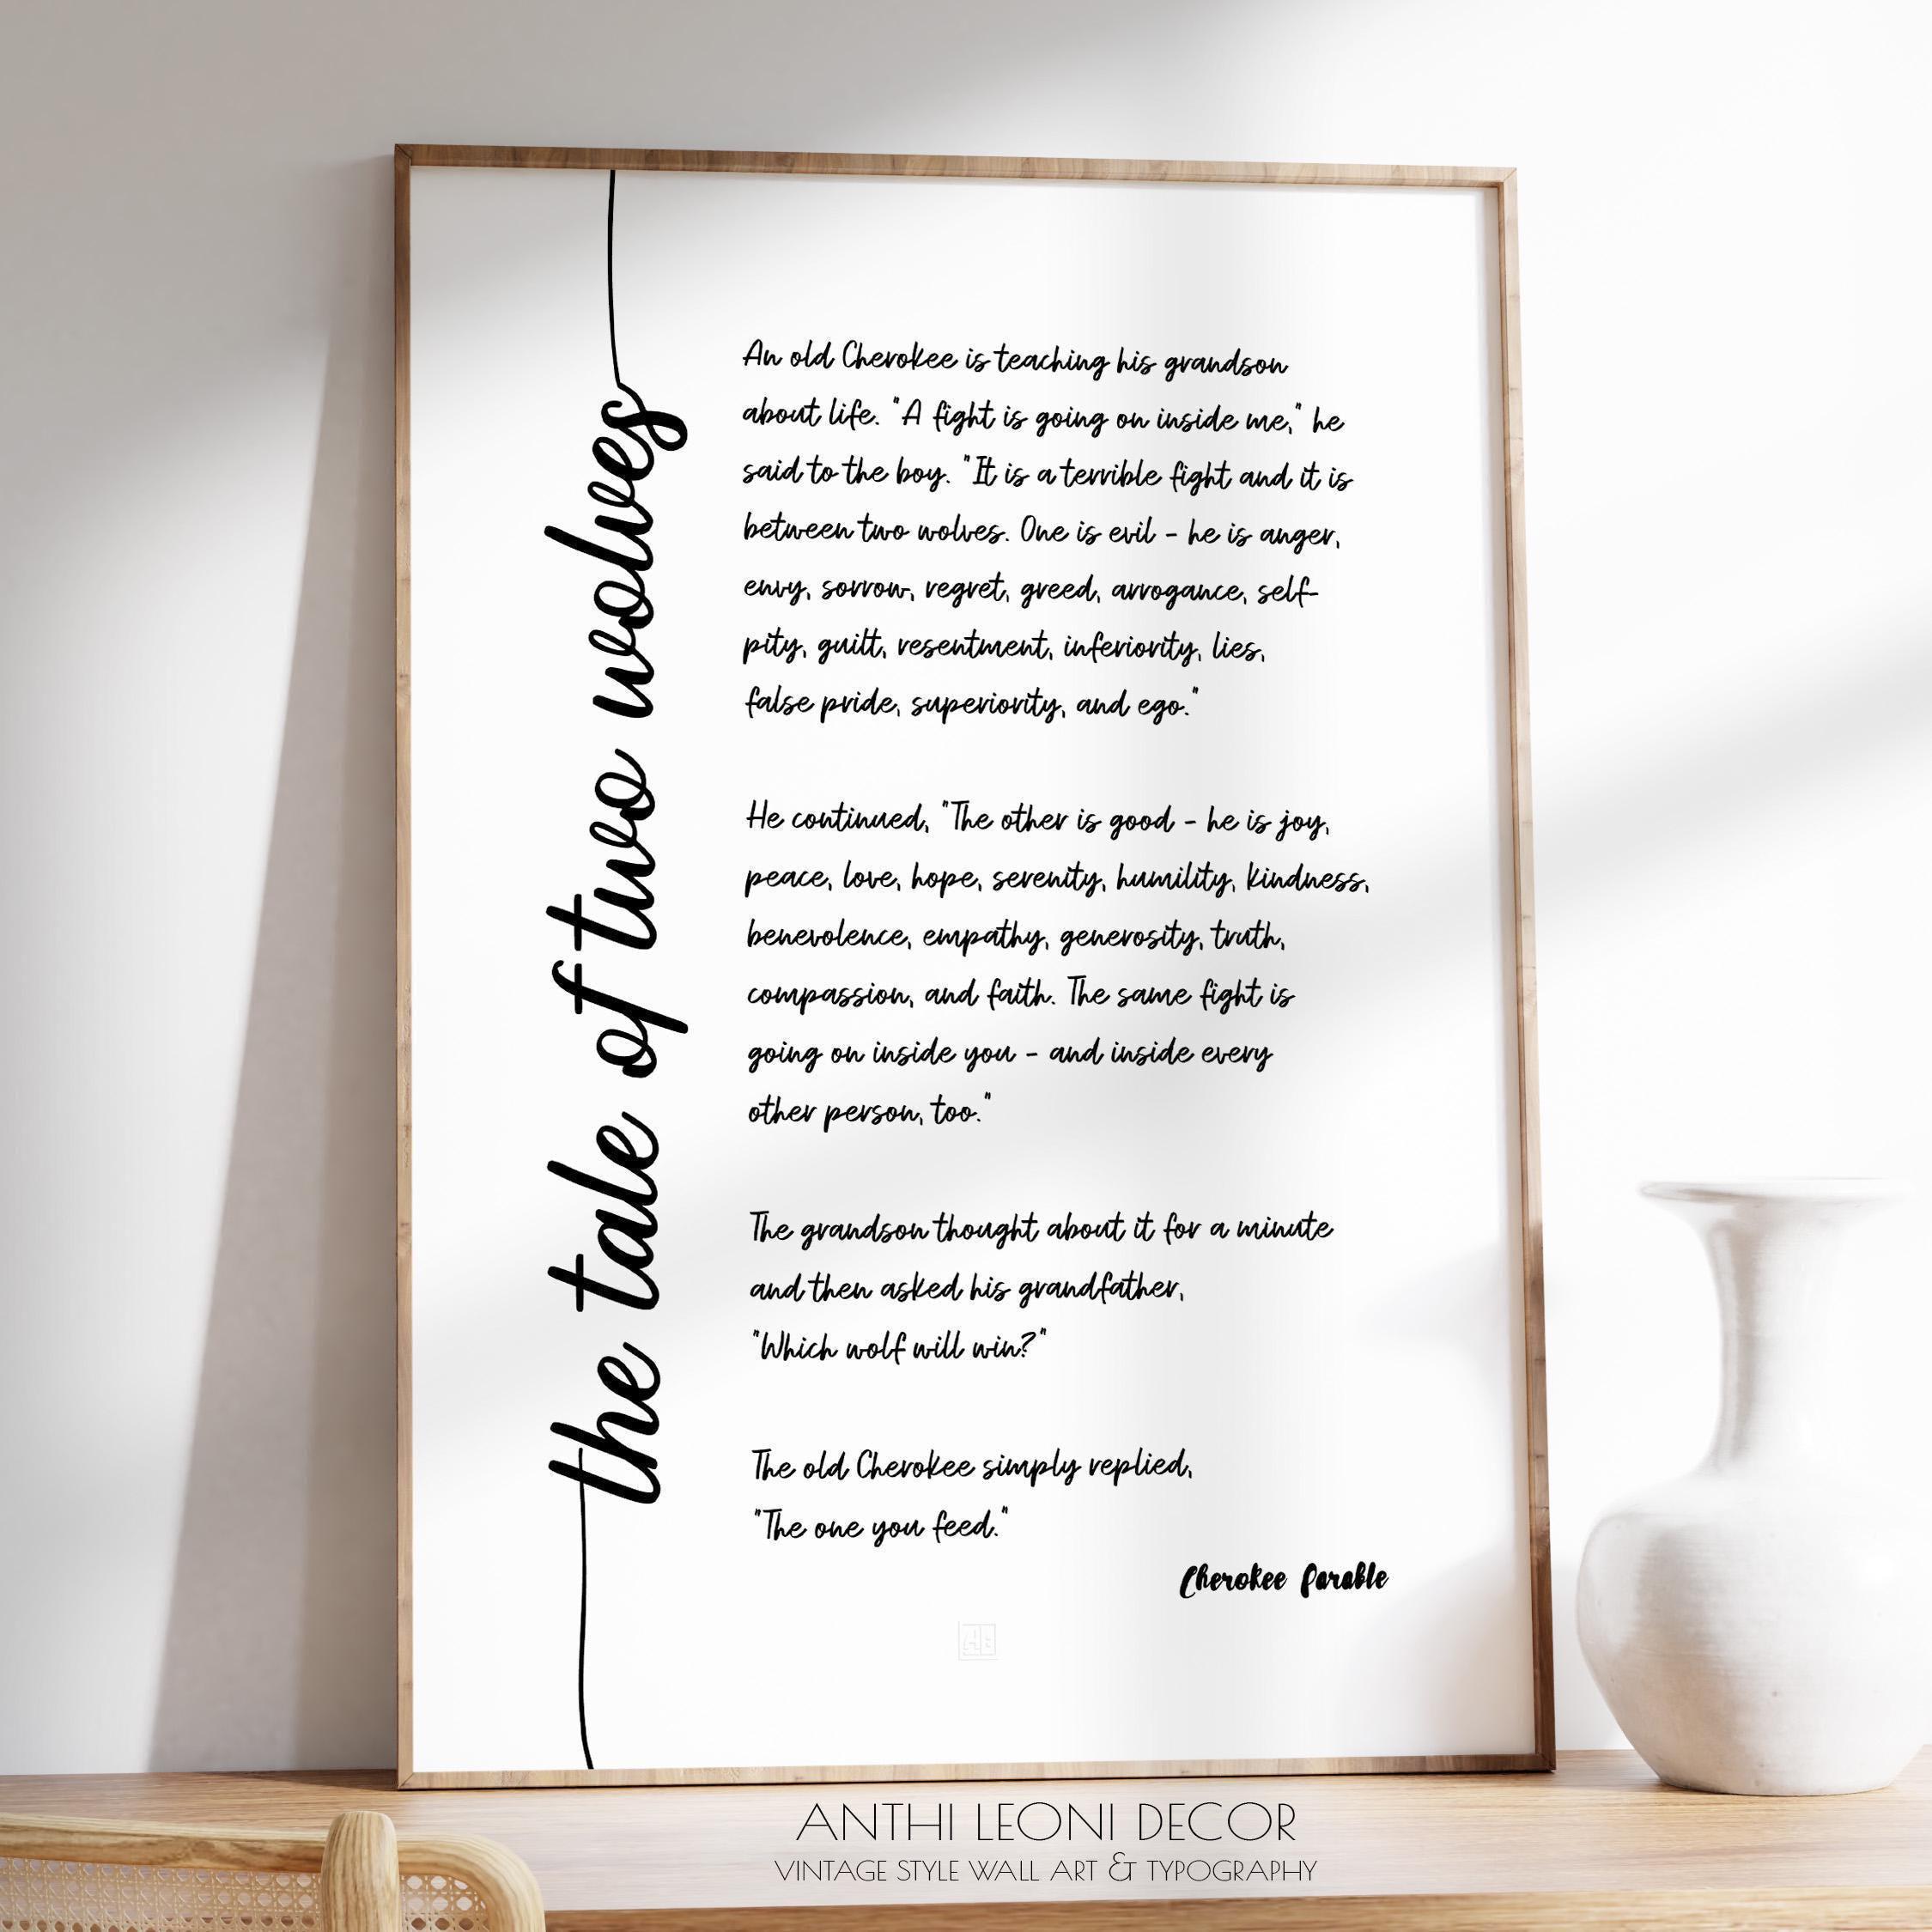 the tale of two wolves
An old Cherokee is teaching his grandson
about life. "A fight is going on inside me," he
said to the boy. "It is a terrible fight and it is
between two wolves. One is evil - he is anger,
envy, sorrow, regret, greed, arrogance, self-
pity, guilt, resentment, inferiority, lies,
false pride, superiority, and ego."
He continued, "The other is good - he is joy,
peace, love, hope, serenity, humility, kindness,
benevolence, empathy, generosity, truth,
compassion, and faith. The same fight is
going on inside you - and inside every
other person, too."
The grandson thought about it for a minute
and then asked his grandfather,
"Which wolf will win?"
The old Cherokee simply replied,
"The one you feed."
Cherokee Parable
ANTHI LEONI DECOR
VINTAGE STYLE WALL ART & TYPOGRAPHY